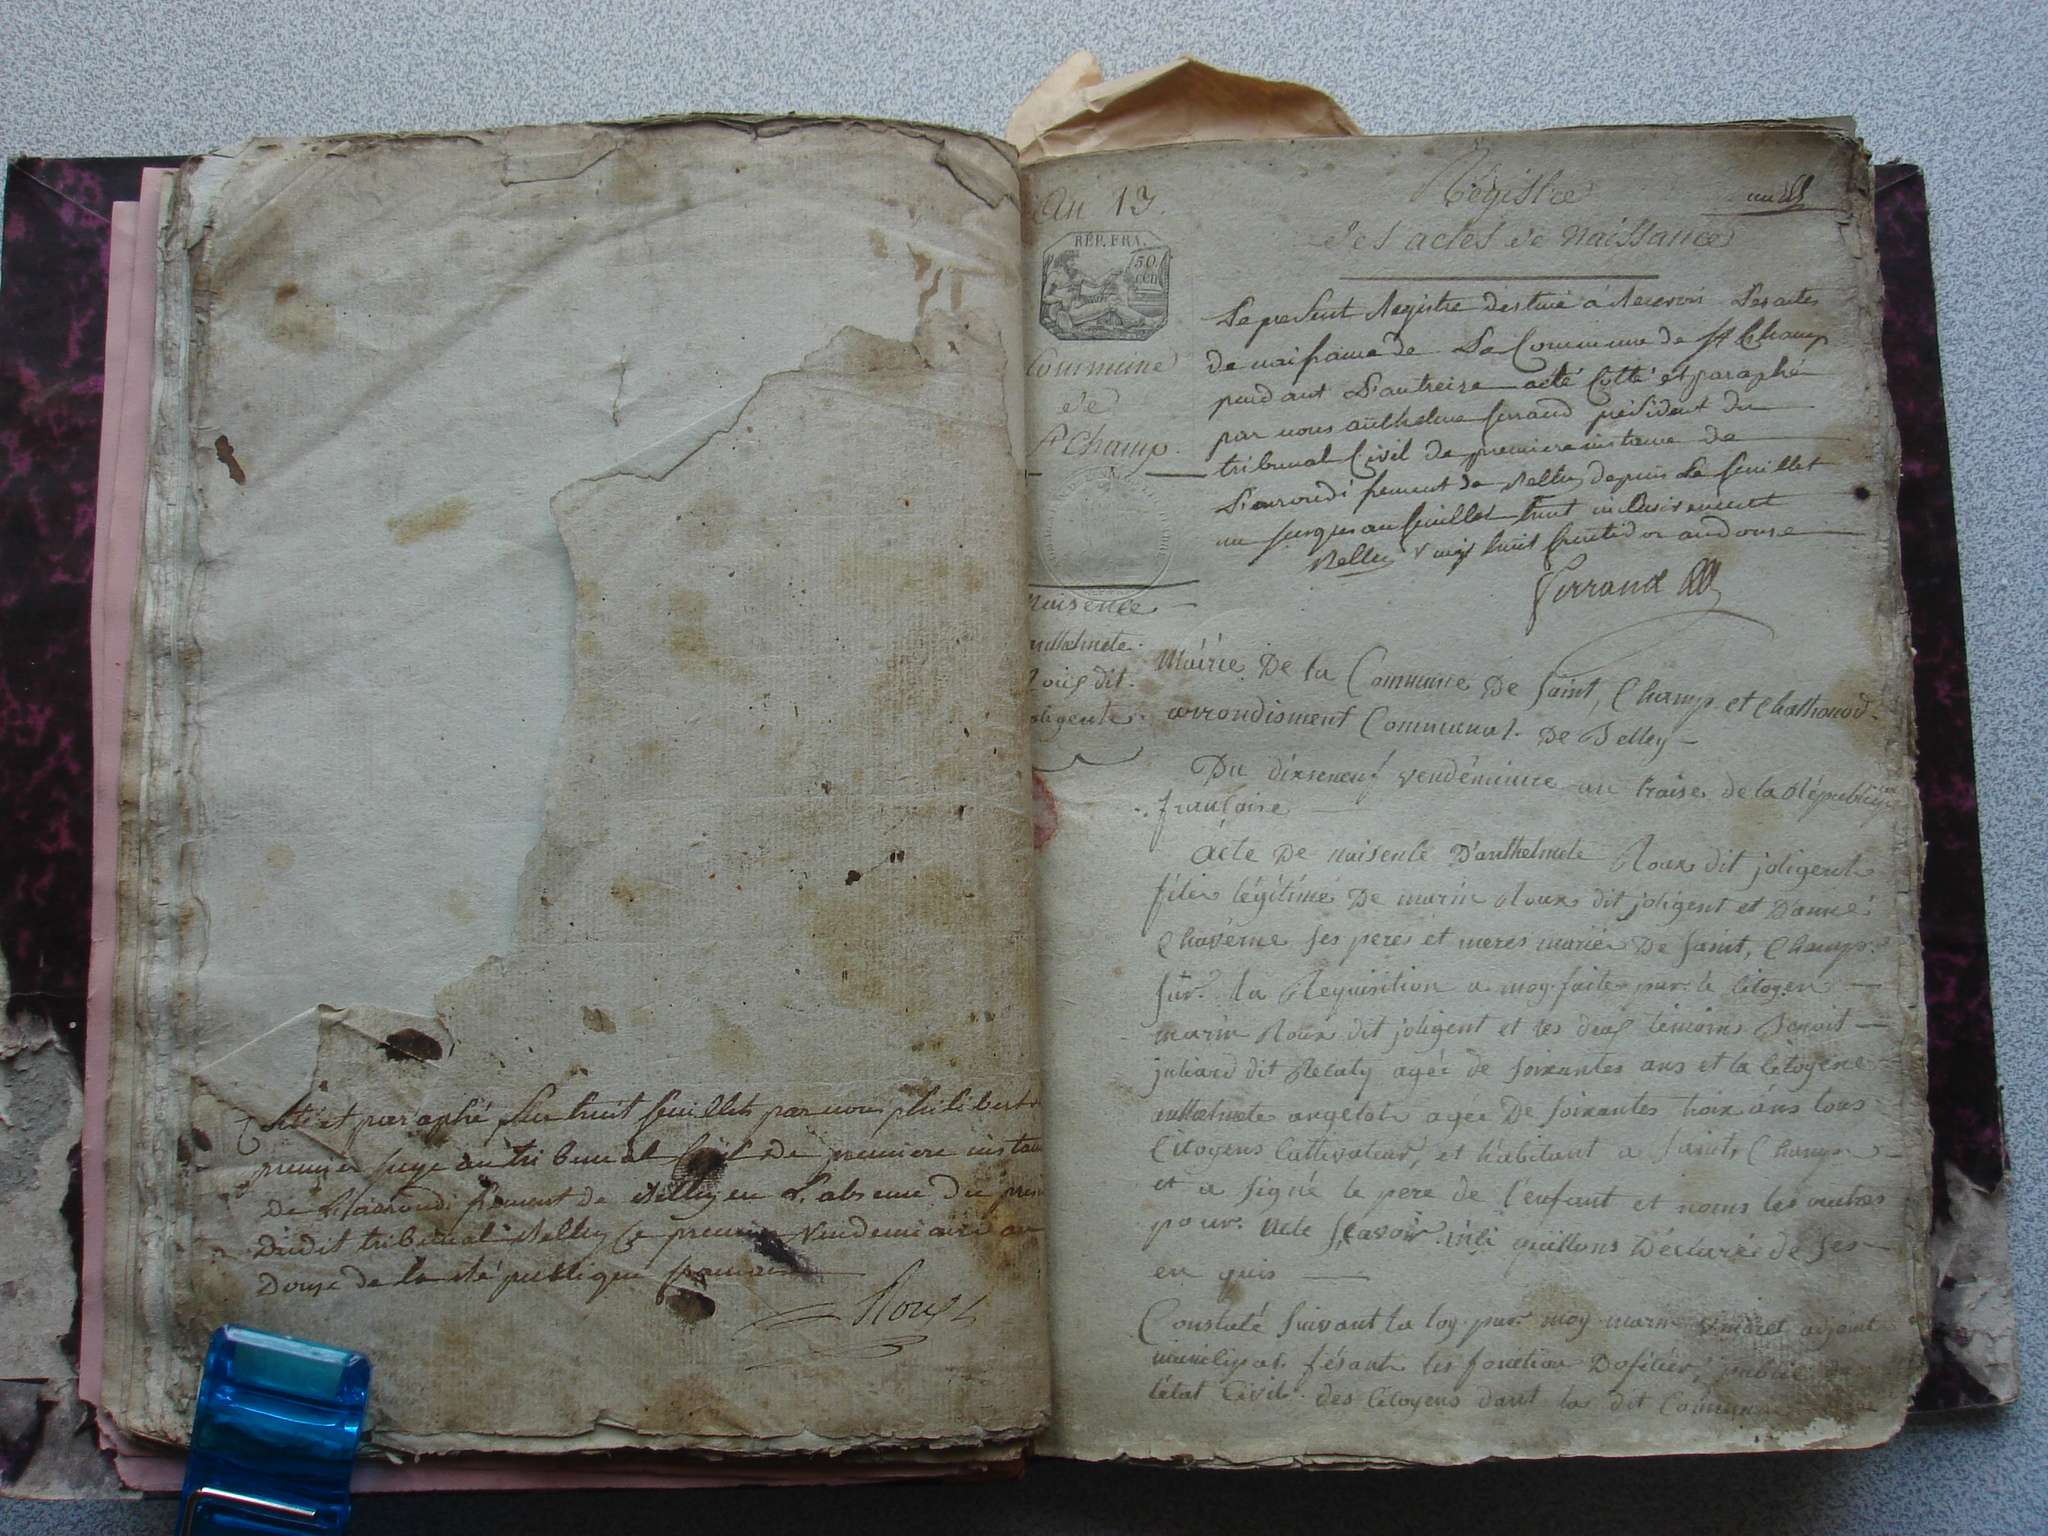 Coté et paraphé sur huit feuillets par nous philibert
premier juge au tribunal Civil De premiere instan
De L'aarondissement de Belley en L'absence Du presi
Dudit tribunal Belley Ce premier Vendemiaire an
Douze de la République francaise
Roux
An 13.
RÉP. FRA.
50 CEN
Commune
de
St Champ.
Naisence
anthelmete
Roux dit
joligente
Régistre
des actes de Naissance
un
Le present Registre destiné à Recevoir Les actes
de naissance de La Commune de St Champ
pendant L'an treize a été Cotté et paraphé
par nous anthelme ferrand président du
tribunal Civil de premiere instance de
L'arrondissement de Belley depuis Le feuillet
un jusques au feuillet huit inclusivement
Belley vingt huit fructidor an douze
Ferrand
Mairie De la Commune De Saint, Champ et Chathonod
arrondisment Communal De Belley
Du dixneuf vendémiaire an traise de la Républiq
francaise
Acte De naisence D'anthelmete Roux dit joligent
fille légitime De marin Roux dit joligent et D'anne
Chavéme ses peres et meres mariés De Saint, Champ
sur la Requisition a moy faite par le Citoyen
marin Roux dit joligent et les deux témoins Benoit
juliard dit Recaty agée de soixantes ans et la Citoyene
anthelmete angelot agée De soixantes troix ans tous
Citoyens Cultivateur, et habitant a Saint, Champ
et a signé le pere de l'enfant et noms les autres
pour Acte Scavoir déclarée de ses
en quis
Constaté suivant la loy par moy marin adjoint
municipal fésant les fonction Dofitier, public de
létat Civil des Citoyens dant la dit Commune